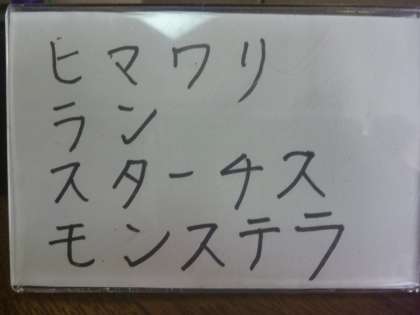 ヒマワリ
ラン
スターチス
モンステラ